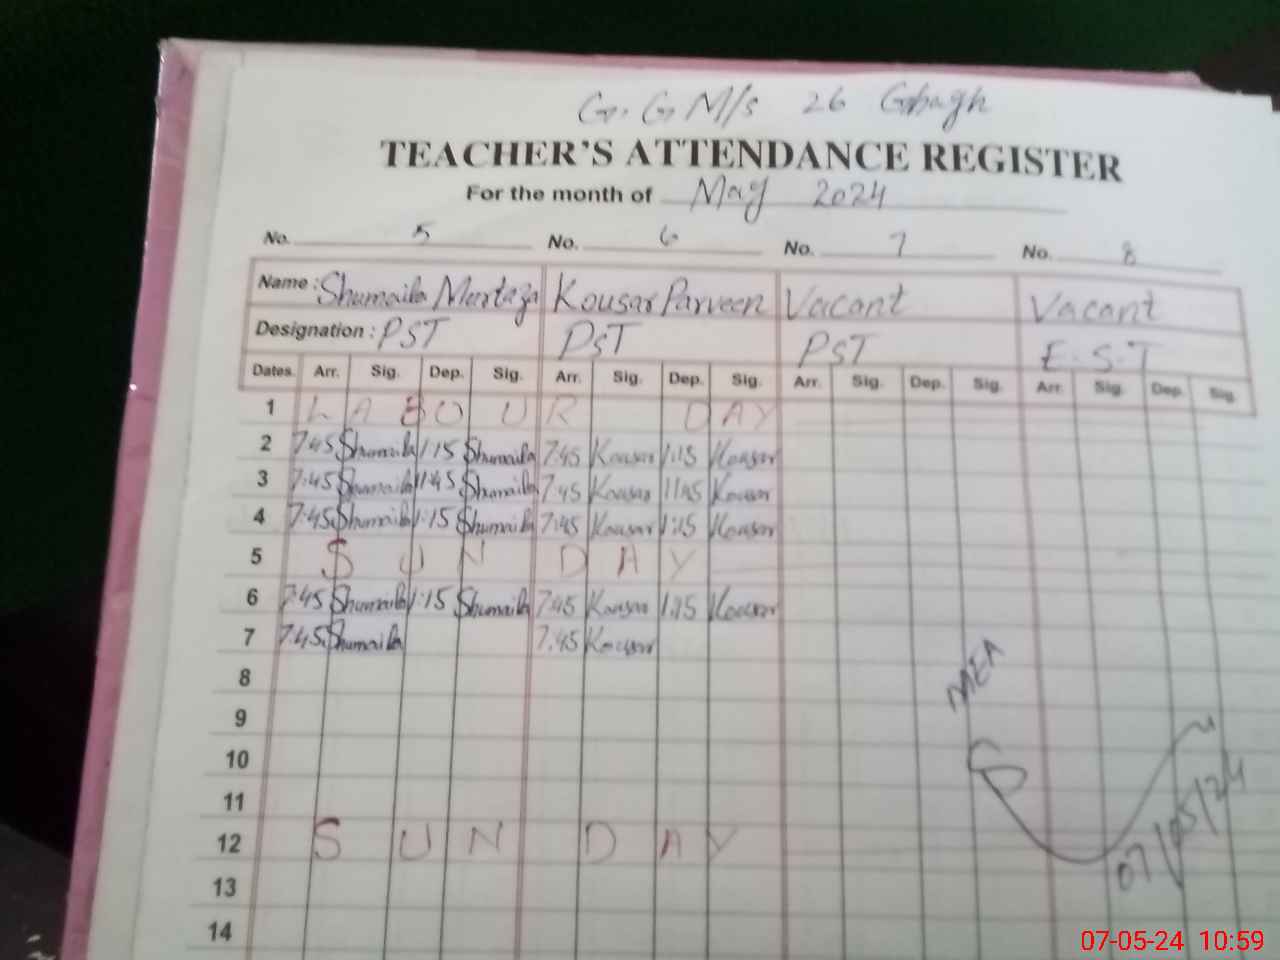 G. G M/s 26 Gbagh
TEACHER'S ATTENDANCE REGISTER
For the month of May 2024
No. 5 No. 6 No. 7 No. 8
Name : Shumaila Murtaza Kousar Parveen Vacant Vacant
Designation : PST PST PST E.S.T
Dates. Arr. Sig. Dep. Sig. Arr. Sig. Dep. Sig. Arr. Sig. Dep. Sig. Arr. Sig. Dep. Sig.
1 LABOUR DAY
2 7:45 Shumaila 1:15 Shumaila 7:45 Kousar 1:15 Kousar
3 7:45 Shumaila 11:45 Shumaila 7:45 Kousar 11:45 Kousar
4 7:45 Shumaila 1:15 Shumaila 7:45 Kousar 1:15 Kousar
5 SUNDAY
6 7:45 Shumaila 1:15 Shumaila 7:45 Kousar 1:15 Kousar
7 7:45 Shumaila 7:45 Kousar
8
MEA
9
10
11
07/05/24
12 SUNDAY
13
14
07-05-24 10:59